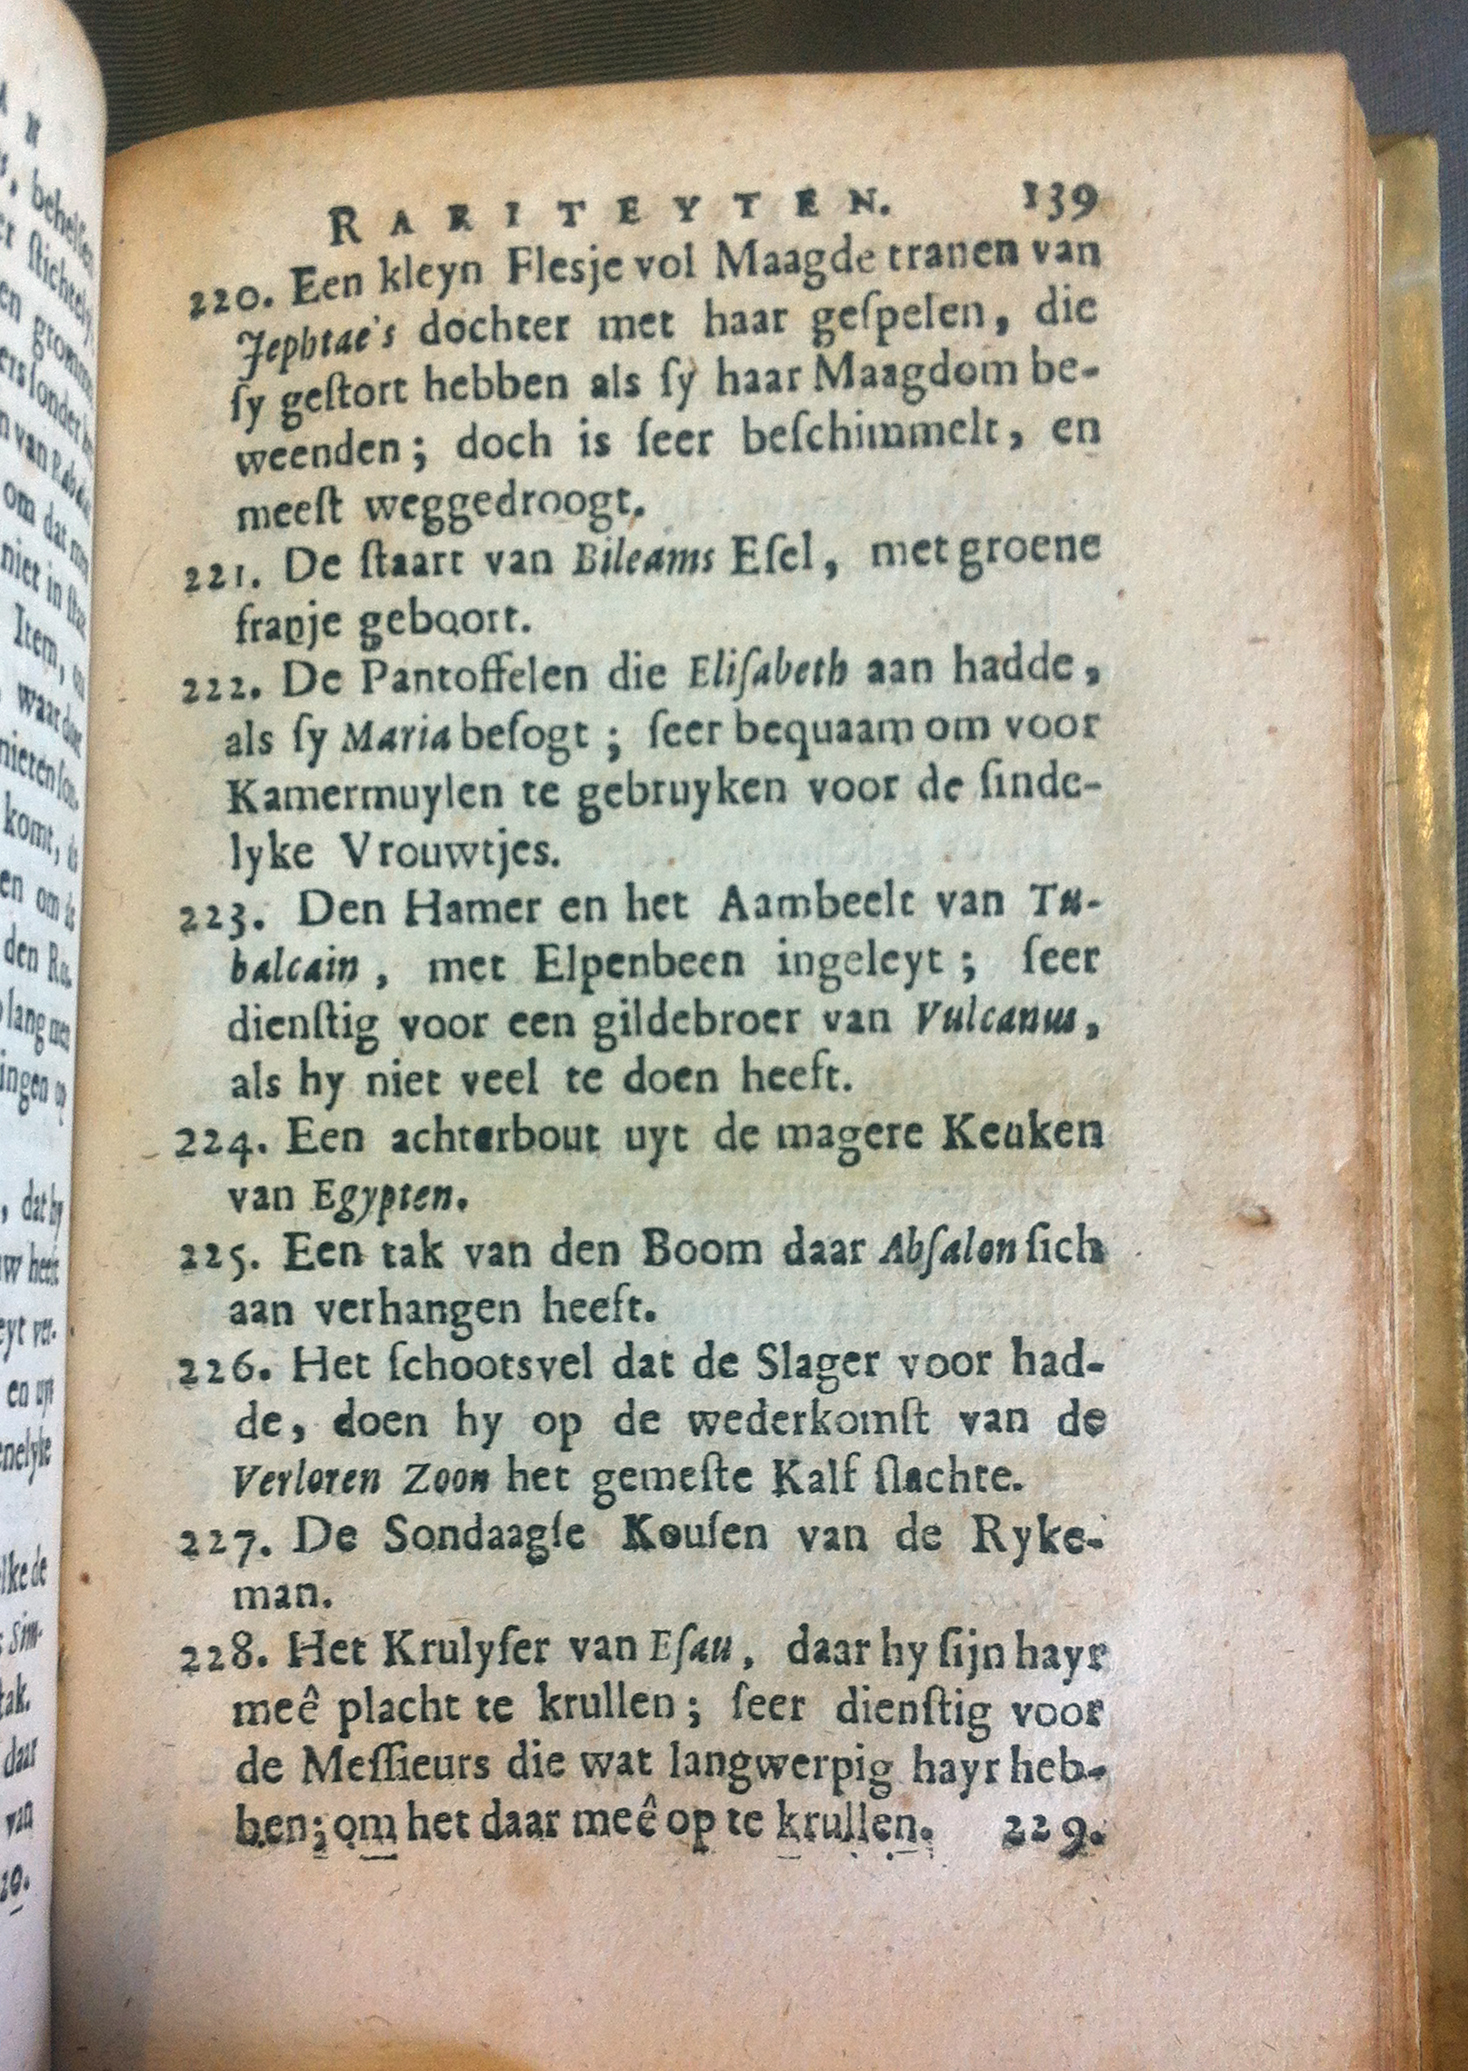 RARITEYTEN. 139
220. Een kleyn Flesje vol Maagde tranen van
Jephtae's dochter met haar geſpelen, die
ſy geſtort hebben als ſy haar Maagdom be-
weenden; doch is ſeer beſchimmelt, en
meeſt weggedroogt.
221. De ſtaart van Bileams Eſel, met groene
franje geboort.
222. De Pantoffelen die Eliſabeth aan hadde,
als ſy Maria beſogt; ſeer bequaam om voor
Kamermuylen te gebruyken voor de ſinde-
lyke Vrouwtjes.
223. Den Hamer en het Aambeelt van Tu-
balcain, met Elpenbeen ingeleyt; ſeer
dienſtig voor een gildebroer van Vulcanus,
als hy niet veel te doen heeft.
224. Een achterbout uyt de magere Keuken
van Egypten.
225. Een tak van den Boom daar Abſalon ſich
aan verhangen heeft.
226. Het ſchootsvel dat de Slager voor had-
de, doen hy op de wederkomſt van de
Verloren Zoon het gemeſte Kalf ſlachte.
227. De Sondaagſe Kouſen van de Ryke-
man.
228. Het Krulyſer van Eſau, daar hy ſijn hayr
meê placht te krullen; ſeer dienſtig voor
de Meſſieurs die wat langwerpig hayr heb-
ben; om het daar meê op te krullen. 229.